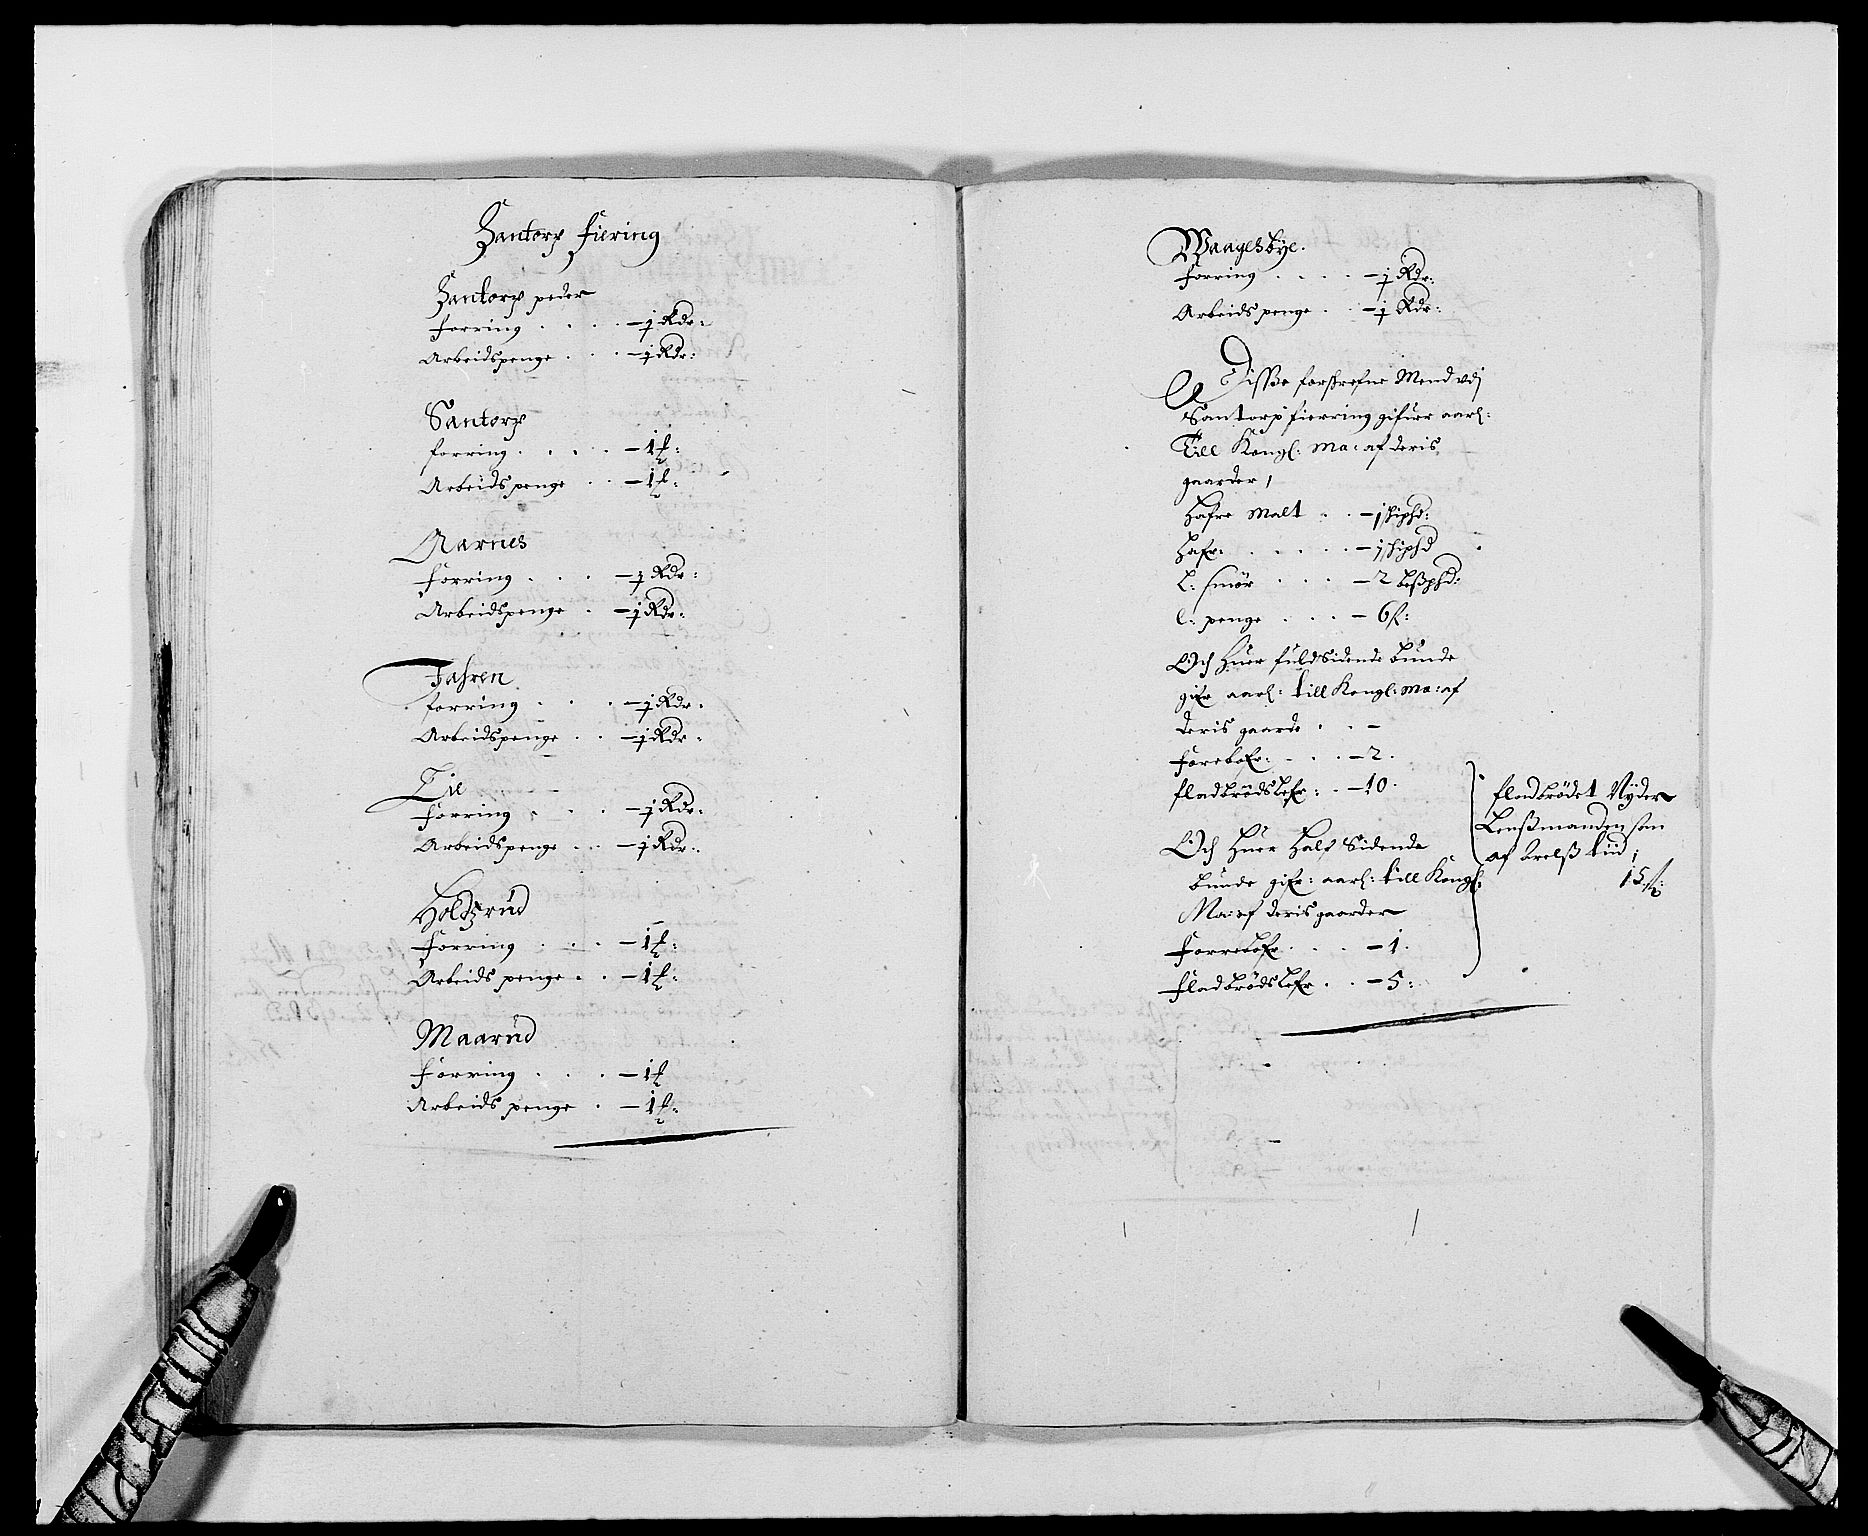 Santorp fiering
Santorp peder
forring . . . . – j Rdr:
Arbeidspenge . . . – j Rdr:
Santorp
forring . . . . – 1 f:
Arbeidspenge . . – 1 f:
Aarnes
forring . . . – j Rdr:
Arbeidspenge . – j Rdr:
Fahren
forring . . . – j Rdr:
Arbeidspenge . . – j Rdr:
Tie
forring . . . – j Rdr:
Arbeidspenge . . – j Rdr:
Holdzrud
forring . . . – 1 f:
Arbeids penge . . – 1 f:
Maarud
forring . . . – 1 f
Arbeids penge . – 1 f:
Waagesbye.
forring . . . . – j Rdr:
Arbeids penge . . – j Rdr:
Disse forschrefne Mend vdj
Santorp fierring gifuer aarl:
Till Kongl: Ma: af deris
gaarder /
Hafre Malt . . – j schipd:
Hafr: . . . . . – j schipd
l: smør . . . – 2 bespd:
l: penge . . . – 6 s:
Och huer fuldsidende bunde
gifr aarl: till Kongl: Ma: af
deris gaarde . . –
forebofr: . . . – 2.
fladbrødslefr: . – 10.
Och huer half sidende
bunde gifr: aarl: till Kongl:
Ma: af deris gaarder
forrebofr . . . – 1.
fladbrødslefr . . – 5:
fladbrødet Nyder
Lensmanden som
af Arelss tiid;
15 s: